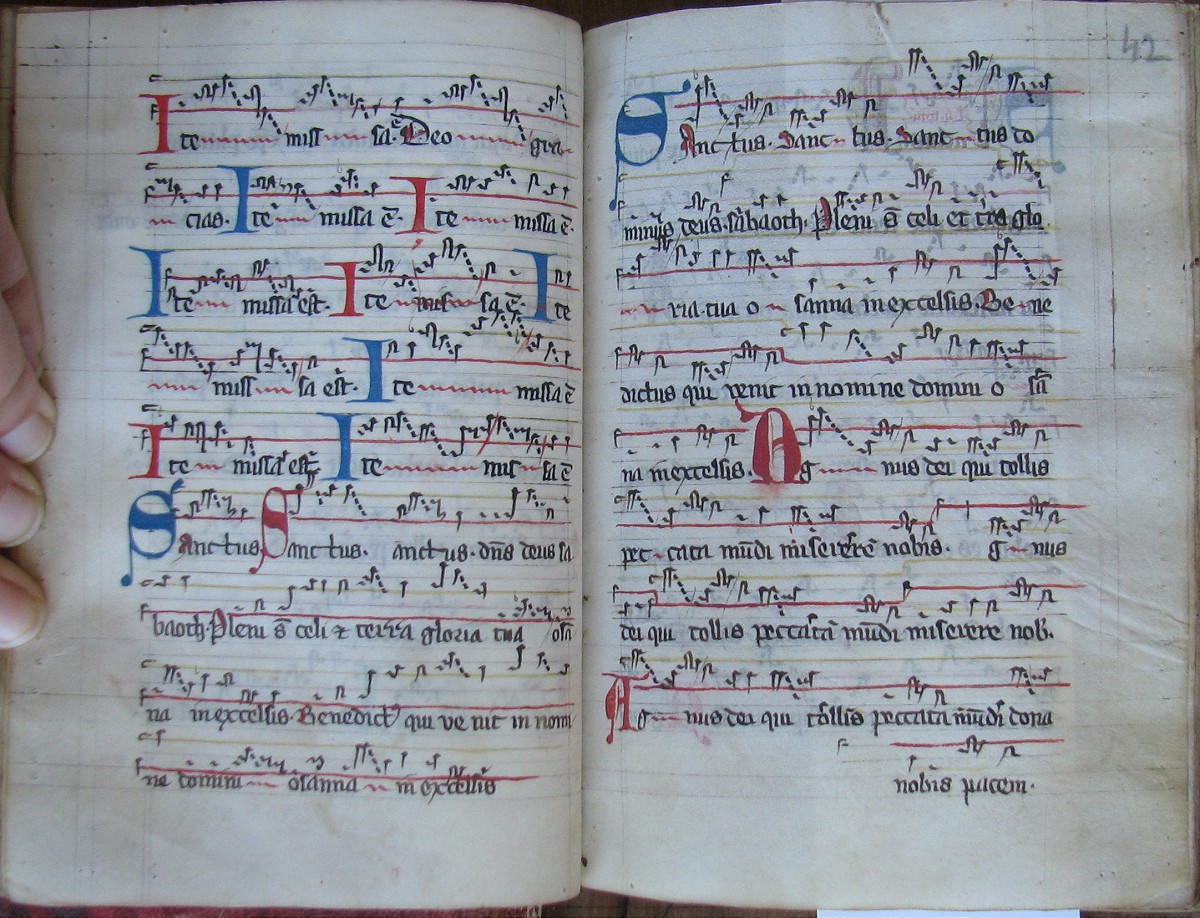 Ite missa. Deo gra
cias. Ite missa ē. Ite missa ē.
Ite missa est. Ite missa ē. Ite
missa est. Ite missa ē
Ite missa est. Ite missa ē
Sanctus. Sanctus. anctus. dn̄s deus sa
baoth. Pleni s̄ celi ⁊ terra gloria tua osā
na in excelsis. Benedict᷒ qui ve nit in nomi
ne domini osanna in excelsis
42
Sanctus. Sanctus. Sanctus do
minus deus sabaoth. Pleni s̄ celi et t̄ra glo
ria tua o sanna in excelsis. Be ne
dictus qui venit in nomine domini o sā
na in excelsis. Ag nus dei qui tollis
pec cata mūdi miserere nobis. g nus
dei qui tollis peccata mūdi miserere nob̄.
Ag nus dei qui tollis peccata mūdi dona
nobis pacem.